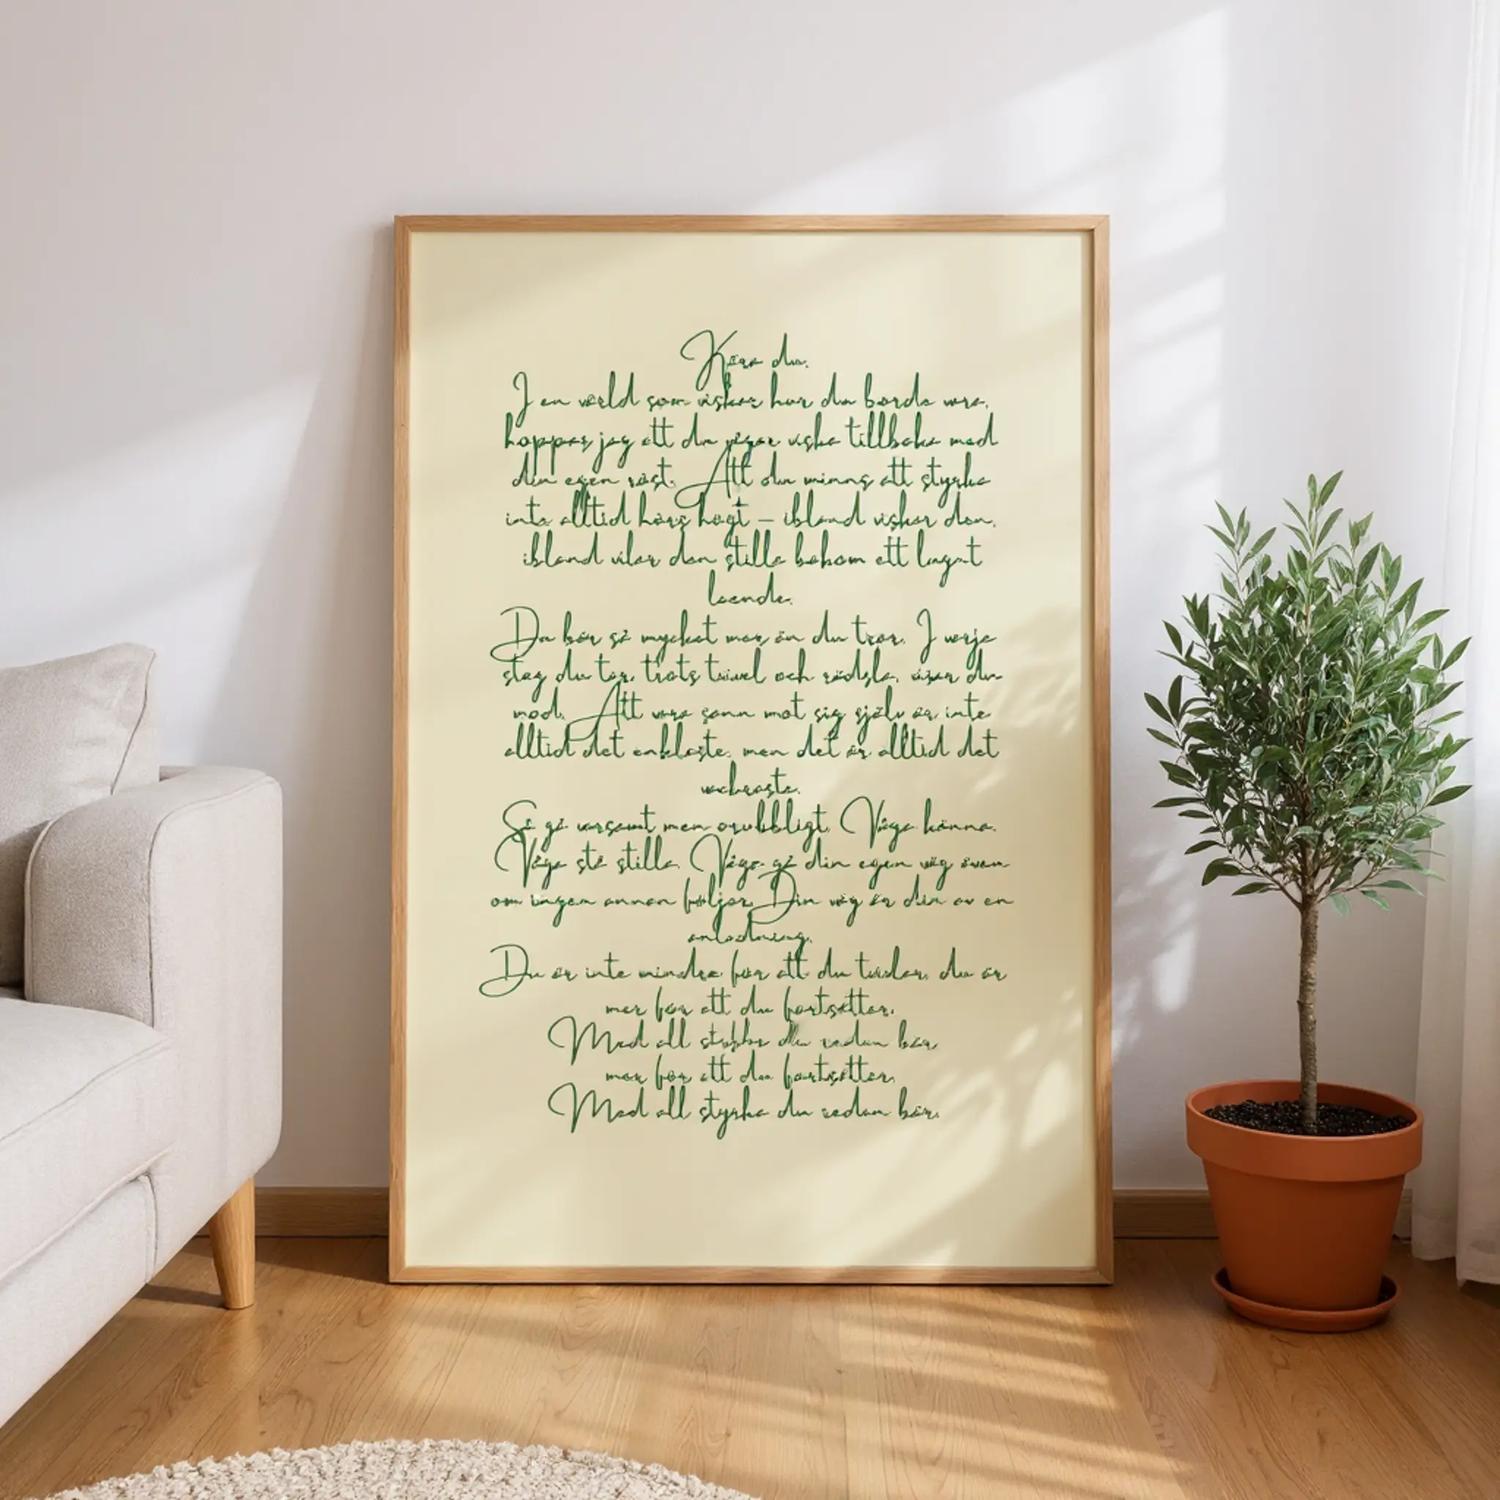 Kära du.
I en värld som viskar hur du borde vara,
hoppas jag att du vågar viska tillbaka med
din egen röst. Att du minns att styrka
inte alltid hörs högt – ibland viskar den,
ibland vilar den stilla bakom ett lugnt
leende.
Du bär så mycket mer än du tror. I varje
steg du tar, trots tvivel och rädsla, visar du
mod. Att vara sann mot sig själv är inte
alltid det enklaste, men det är alltid det
vackraste.
Så gå varsamt men orubbligt. Våga känna.
Våga stå stilla. Våga gå din egen väg även
om ingen annan följer. Din väg är din av en
anledning.
Du är inte mindre för att du tvivlar, du är
mer för att du fortsätter.
Med all du redan bär
mer för att du fortsätter.
Med all styrka du redan bär.